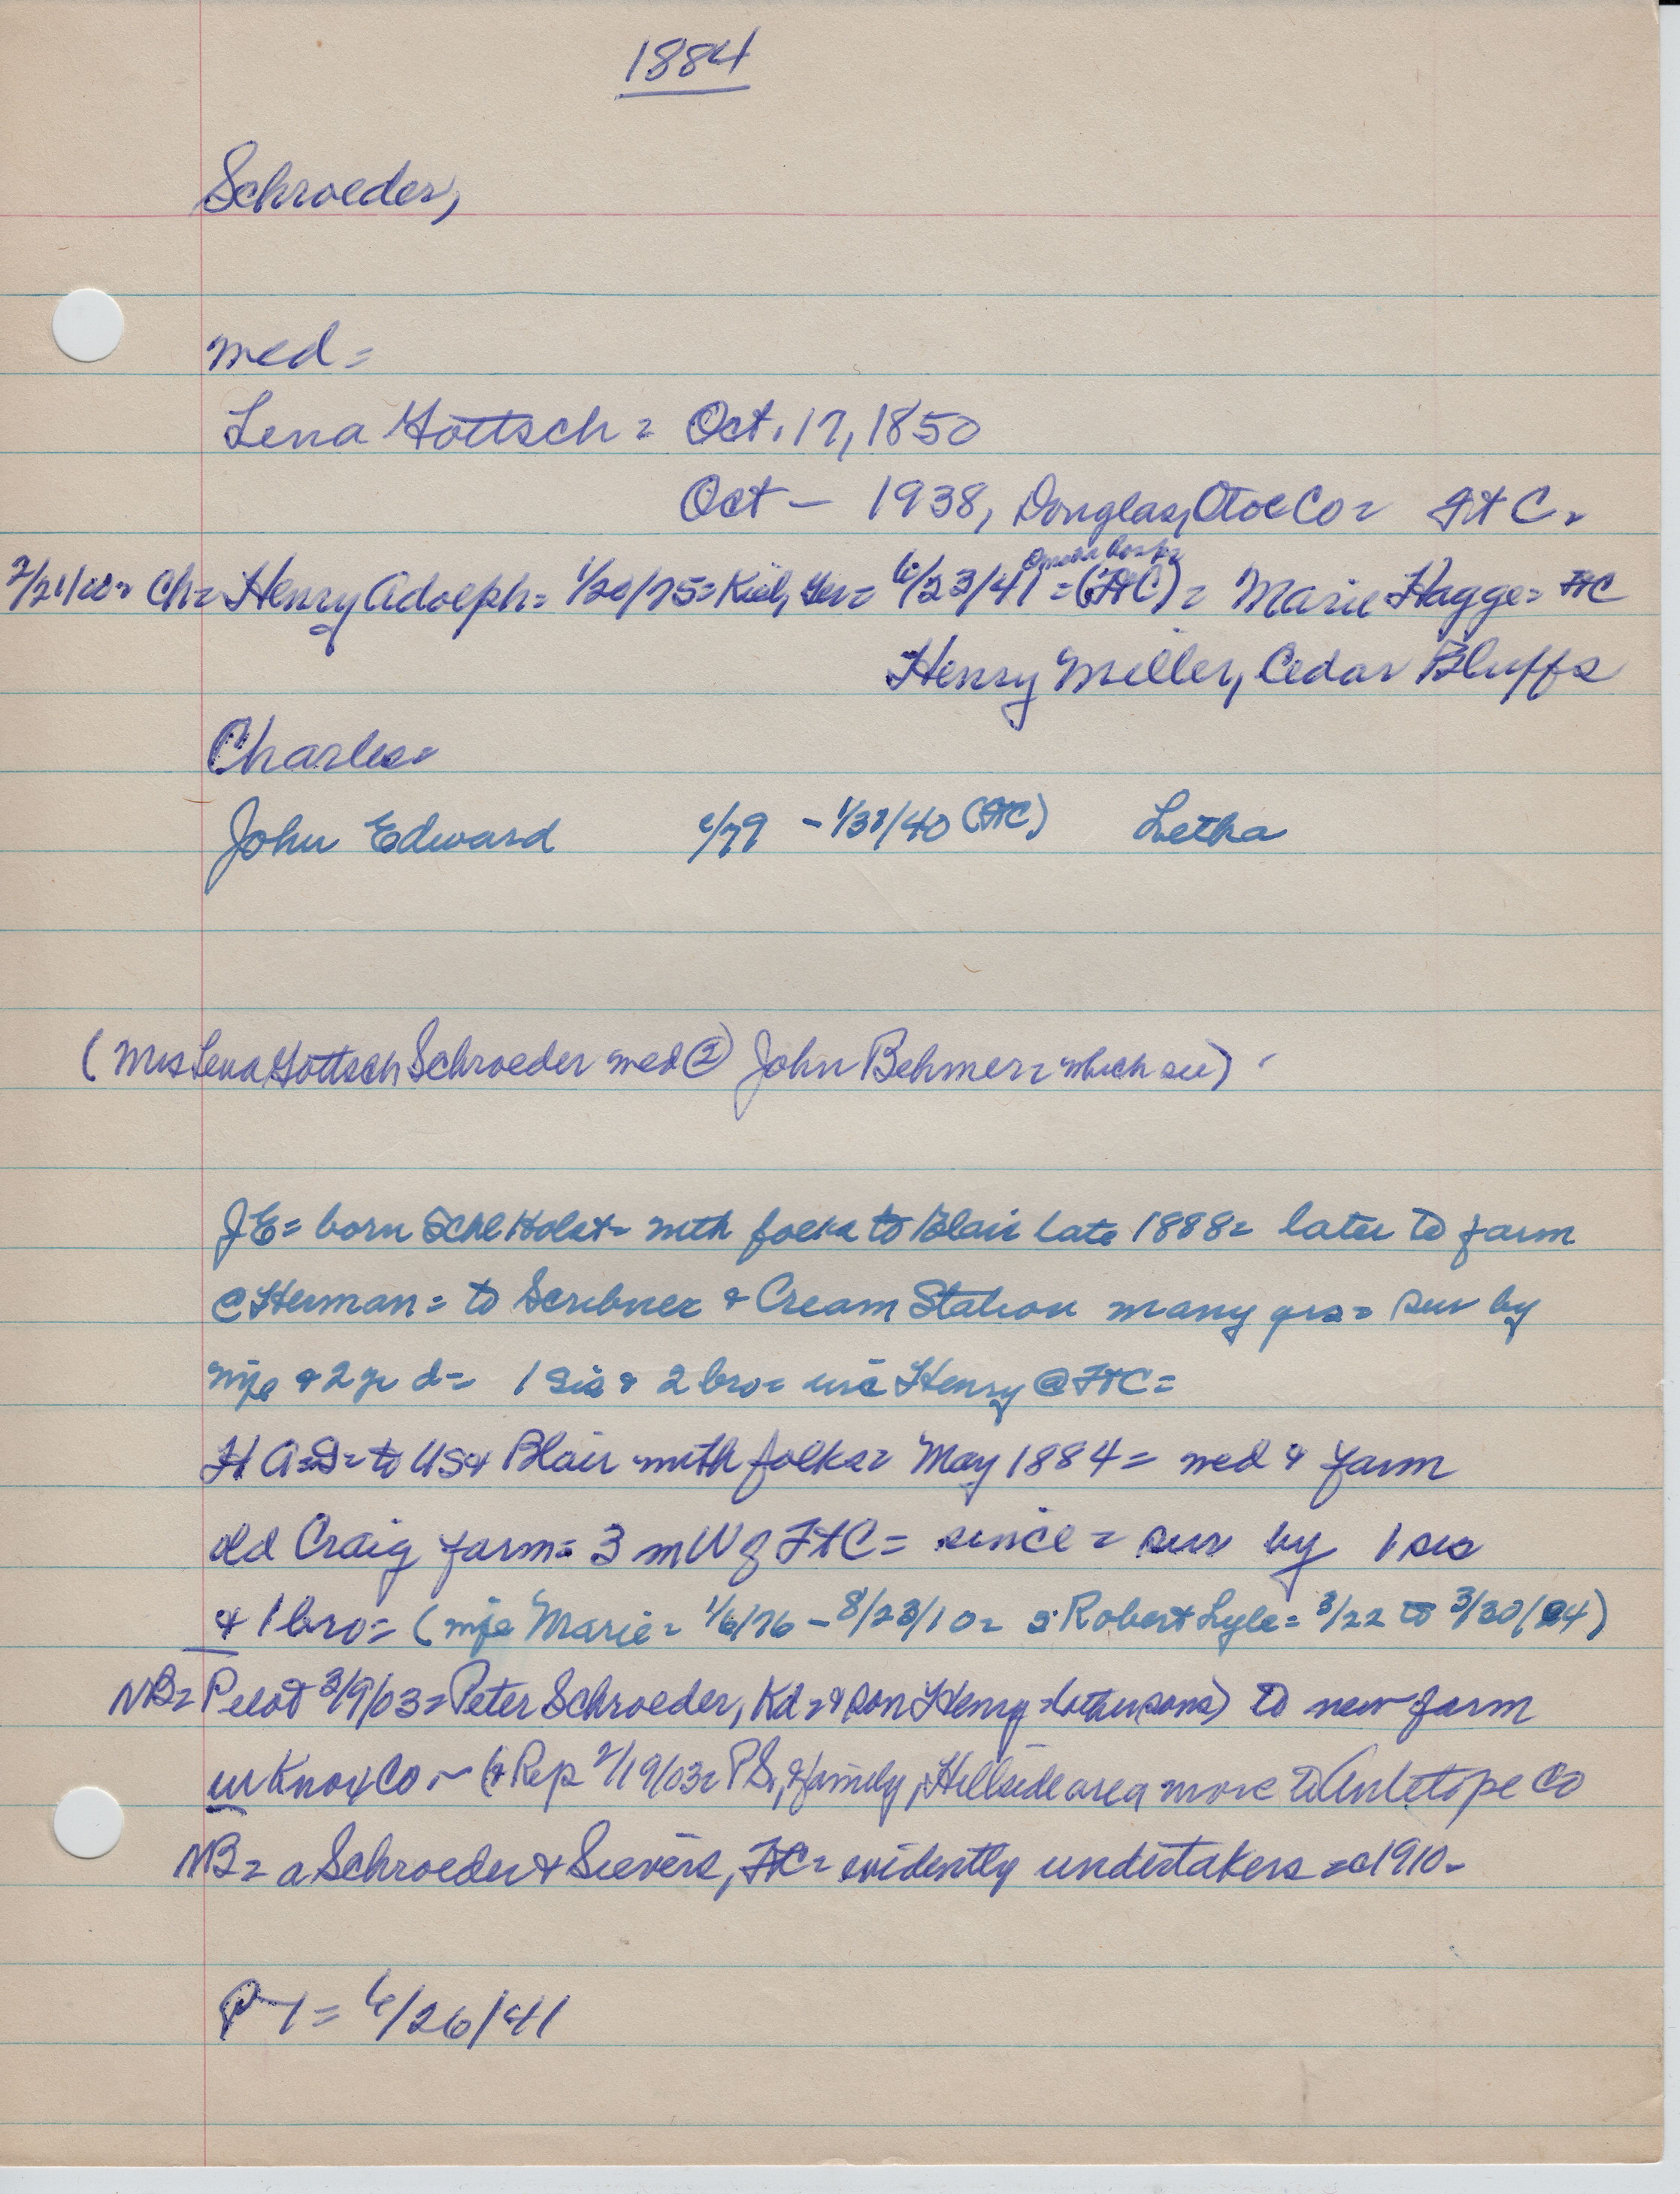 1884
Schroeder,
med =
Lena Gottsch = Oct. 17, 1850
Oct — 1938, Douglas, Otoe Co = Ft C =
Omaha hosp =
2/21/00 = Ch = Henry Adolph = 1/20/75 = Kiel, Ger = 6/23/41 = (FtC) = Marie Hagge = FtC
Henry Miller, Cedar Bluffs
Charles =
John Edward /79 - /40 (FtC) Letha
(Mrs Lena Gottsch Schroeder med ② John Behmer = which see)
JE = born Schl Holst = with folks to Blair late 1888 = later to farm
@ Herman = to Scribner & Cream Station many yrs = sur by
wife & 2 gr d = 1 sis & 2 bro = inc Henry @ FtC =
H A S = to US & Blair with folks = May 1884 = med & farm
old Craig farm = 3 m W of FtC = since = sur by 1 sis
& 1 bro = (wife Marie = 1/6/76 - 8/23/10 = s Robert Lyle = 3/22 to 3/30/ )
NB = Pilot 3/9/03 = Peter Schroeder, Kd = & son Henry = (other sons) to new farm
in Knox Co = (& Rep 2/19/03 = P S, & family, Hillside area move to Antelope Co
NB = a Schroeder & Sievers, FtC = evidently undertakers = c1910 =
P - 1 = 6/26/41